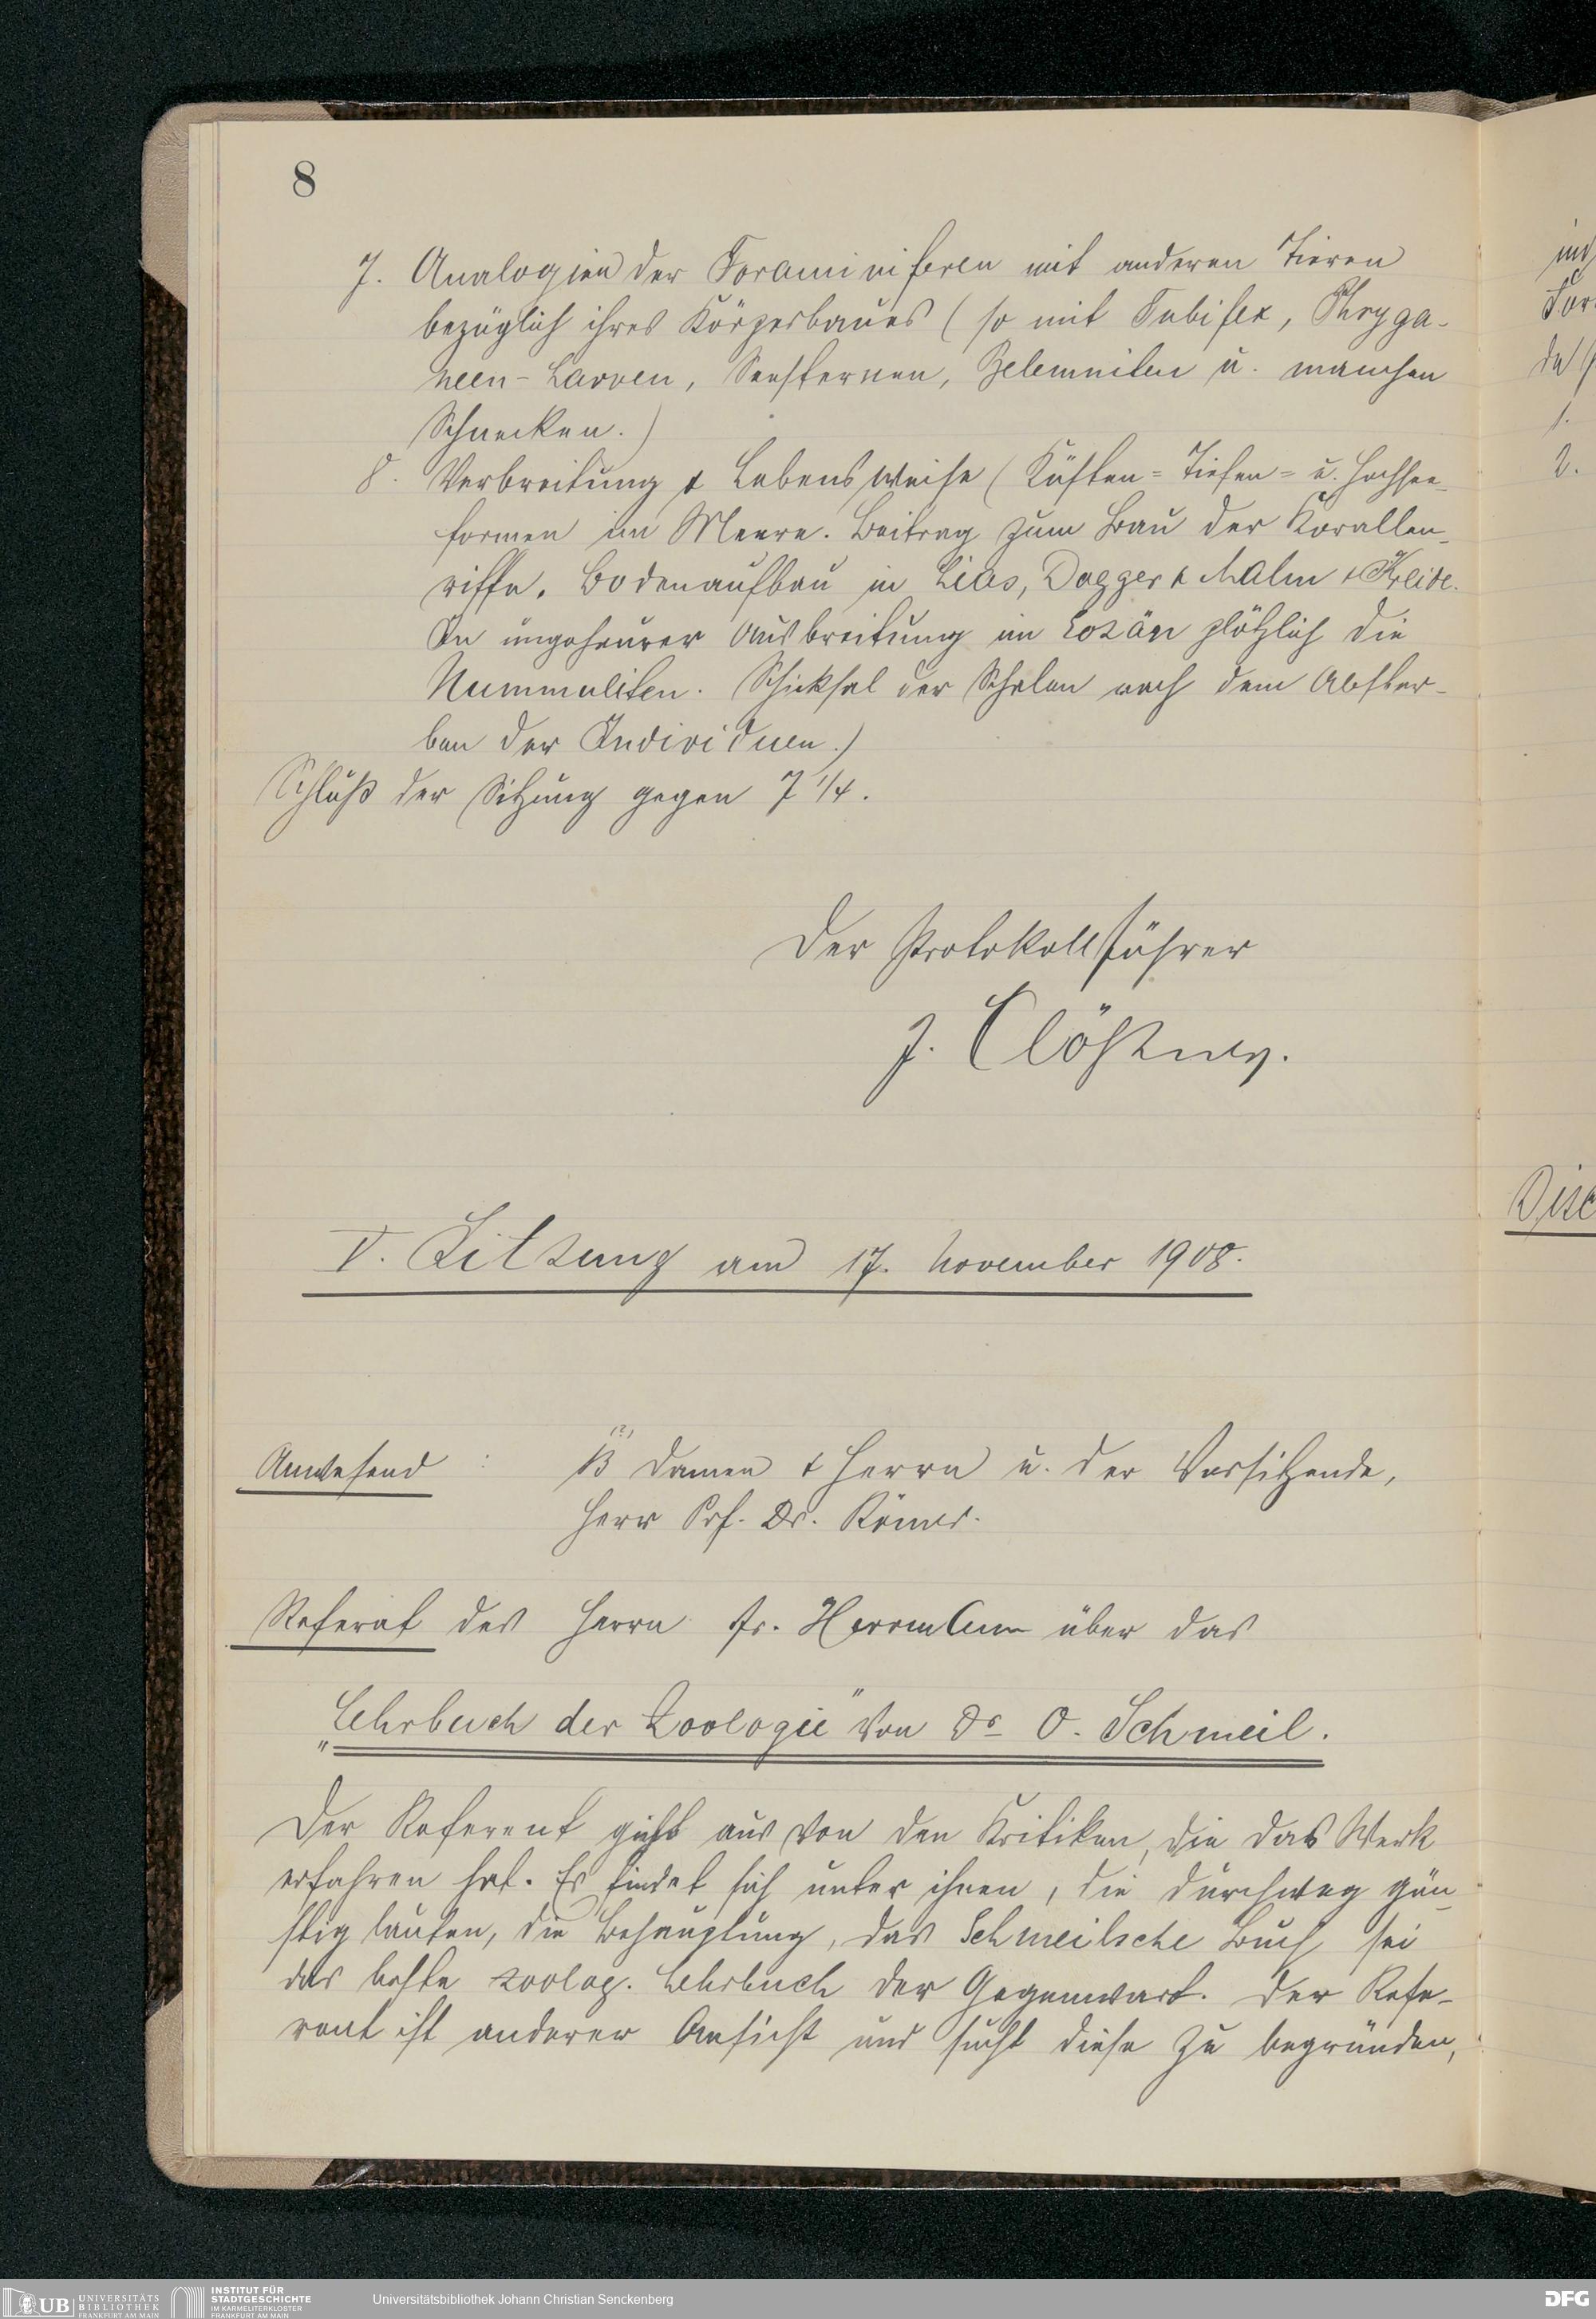 8
7. Analogien der Foraminiferen mit anderen Tieren
bezüglich ihres Körperbaues (so mit Tubifex, Phryga-
neen-Larven, Seesternen, Belemniten u. manchen
Schnecken.)
8. Verbreitung & Lebensweise (Küsten= Tiefen= u. Hochsee-
formen im Meere. Beitrag zum Bau der Korallen-
riffe. Bodenaufbau in Lias, Dogger & Malm & Kreide.
In ungeheurer Ausbreitung im Eozän plötzlich die
Nummuliten. Schicksal der Schalen nach dem Abster-
ben der Individuen.)
Schluß der Sitzung gegen 7 1/4.
Der Protokollführer
J.
V. Sitzung am 17. November 1908.
Anwesend : 13 (?) Damen & Herrn u. der Vorsitzende,
Herr Prf. Dr. Römer.
Referat des Herrn Fr. Herrmann über das
„Lehrbuch der Zoologie" von Dr O. Schmeil.
Der Referent geht aus von den Kritiken, die das Werk
erfahren hat. Es findet sich unter ihnen, die durchweg gün-
stig lauten, die Behauptung, das Schmeilsche Buch sei
das beste zoolog. Lehrbuch der Gegenwart. Der Refe-
rent ist anderer Ansicht und sucht diese zu begründen,
ind
For
da
1.
2.
Disc
UB UNIVERSITÄTS BIBLIOTHEK FRANKFURT AM MAIN
INSTITUT FÜR STADTGESCHICHTE IM KARMELITERKLOSTER FRANKFURT AM MAIN
Universitätsbibliothek Johann Christian Senckenberg
DFG